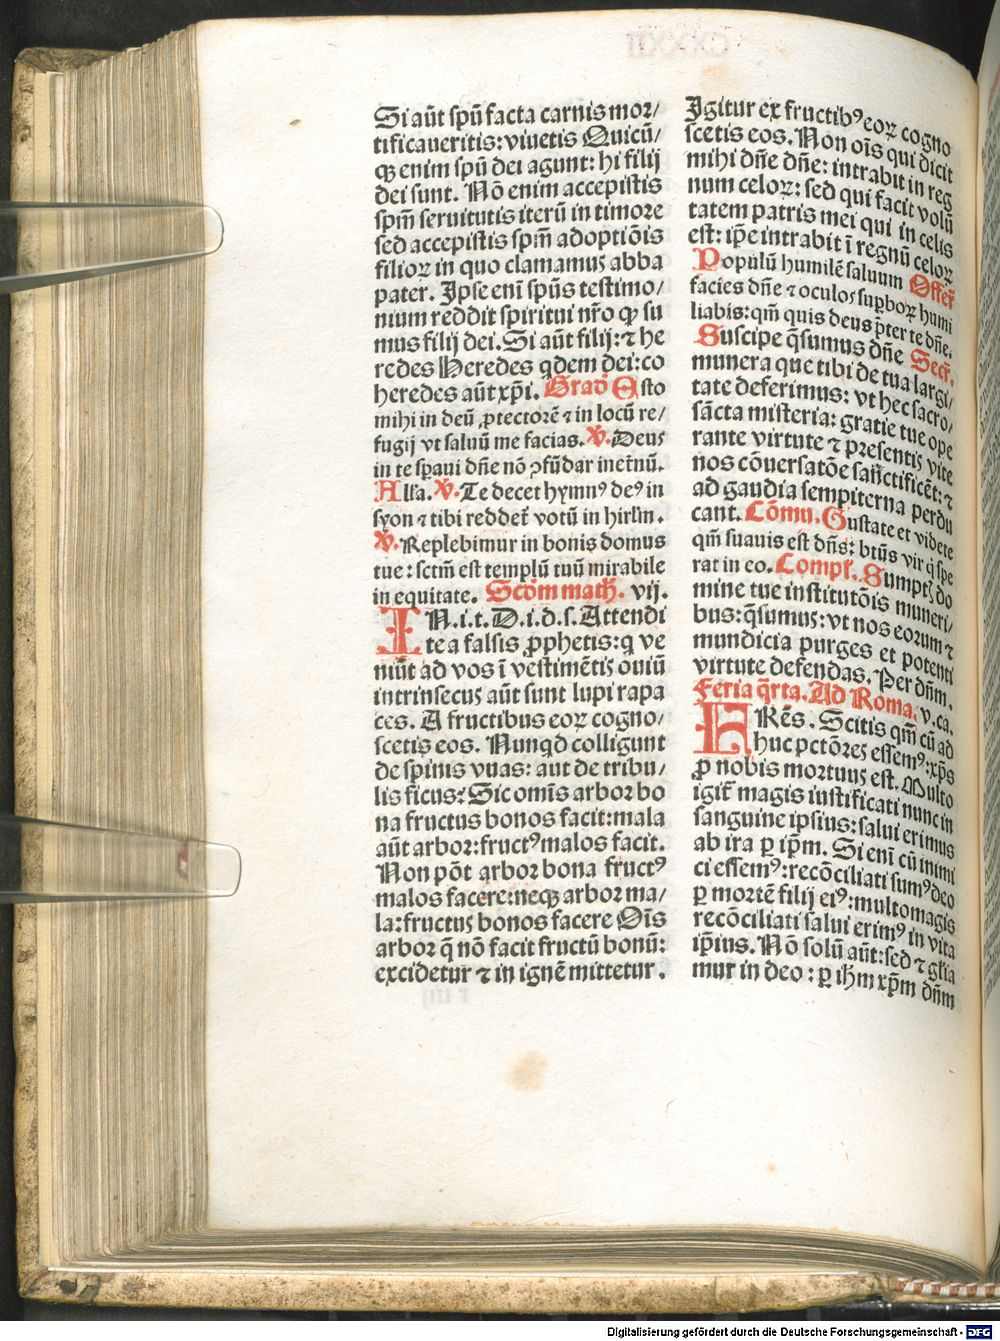 Si aūt spū facta carnis mor/
tificaueritis: viuetis Quicū/
qȝ enim spū dei agunt: hi filij
dei sunt. Nō enim accepistis
spm̄ seruitutis iterū in timore
sed accepistis spm̄ adoptiōis
filioꝝ in quo clamamus abba
pater. Ipse eni spūs testimo/
nium reddit spiritui nr̄o qꝫ su
mus filij dei. Si aūt filij: ⁊ he
redes Heredes qdem dei: co
heredes aūt xp̄i. Grad̄ Esto
mihi in deū ꝓtectorē ⁊ in locū re/
fugij vt saluū me facias. ℣. Deus
in te sꝑaui dn̄e nō ꝯfūdar inet̄nū.
Alľa. ℣. Te decet hymnꝰ deꝰ in
syon ⁊ tibi reddet̄ votū in hirľm.
℣. Replebimur in bonis domus
tue: sctm̄ est templū tuū mirabile
in equitate. Scd̄m math. vij.
IN. i. t. D. i. d. s. Attendi
te a falsis ꝓphetis: q ve
niūt ad vos ī vestimētis ouiū
intrinsecus aūt sunt lupi rapa
ces. A fructibus eoꝝ cogno/
scetis eos. Nunqd colligunt
de spinis vuas: aut de tribu/
lis ficus: Sic omīs arbor bo
na fructus bonos facit: mala
aūt arbor: fructꝰ malos facit.
Non pōt arbor bona fructꝰ
malos facere: neqȝ arbor ma/
la: fructus bonos facere Oīs
arbor q̄ nō facit fructū bonū:
excidetur ⁊ in ignē mittetur.
Igitur ex fructibꝰ eoꝝ cogno
scetis eos. Non oīs qui dicit
mihi dn̄e dn̄e: intrabit in reg
num celoꝝ: sed qui facit volū
tatem patris mei qui in celis
est: ip̄e intrabit ī regnū celoꝝ
Populū humilē saluum Offer̄
facies dn̄e ⁊ oculos suꝑboꝝ humi
liabis: qm̄ quis deus p̄ter te dn̄e.
Suscipe q̄sumus dn̄e Secr̄.
munera que tibi de tua largi/
tate deferimus: vt hec sacro/
sācta misteria: gratie tue ope
rante virtute ⁊ presentis vite
nos cōuersatōe sāctificēt: ⁊
ad gaudia sempiterna perdu
cant. Cōmu. Gustate et videte
qm̄ suauis est dn̄s: btūs vir q̇ spe
rat in eo. Compľ. Sumptꝭ do
mine tue institutōis muneri/
bus: q̄sumus: vt nos eorum ⁊
mundicia purges et potenti
virtute defendas. Per dn̄m.
Feria q̄rta. Ad Roma. v. ca.
FRēs. Scitis qm̄ cū ad
huc pctōres essemꝰ: xp̄s
ꝓ nobis mortuus est. Multo
igit̄ magis iustificati nunc in
sanguine ipsius: salui erimus
ab ira ꝑ ip̄m. Si eni cū inimi
ci essemꝰ: recōciliati sumꝰ deo
ꝑ mortē filij eiꝰ: multo magis
recōciliati salui erimꝰ in vita
ip̄ius. Nō solū aūt: sed ⁊ gľia
mur in deo: ꝑ ihm̄ xp̄m dn̄m
Digitalisierung gefördert durch die Deutsche Forschungsgemeinschaft - DFG